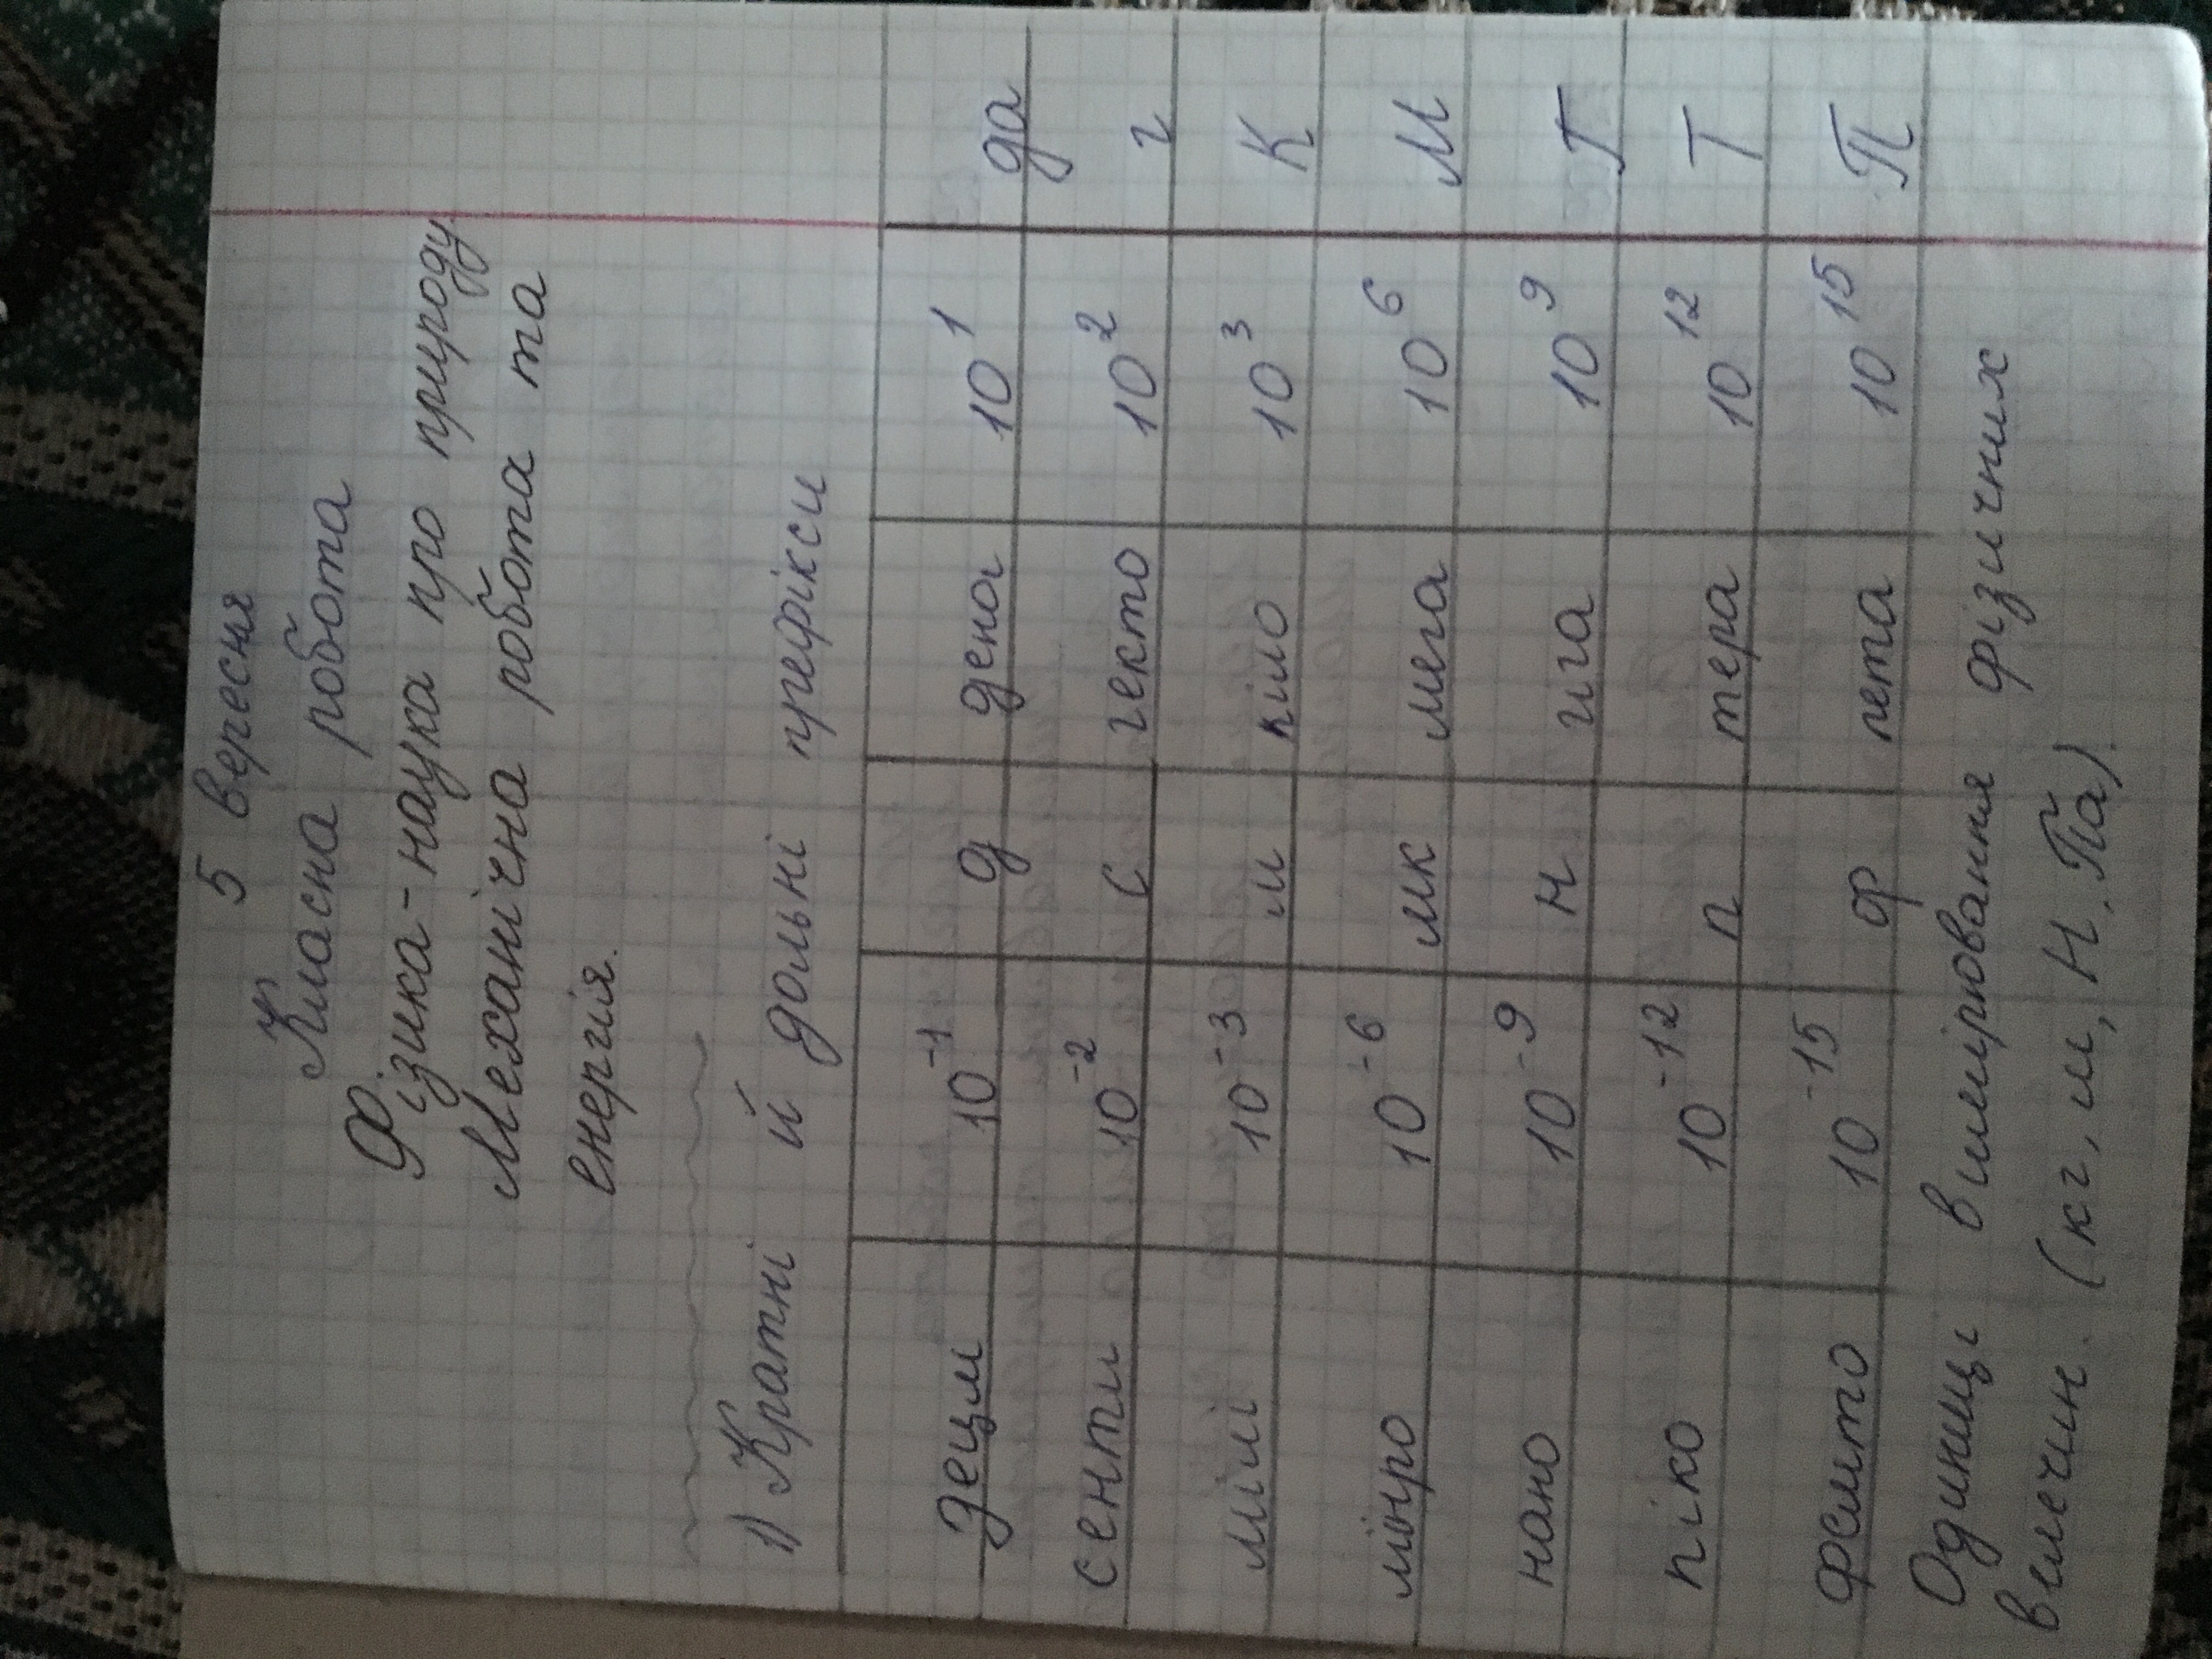 5 вересня
Класна робота
Фізика-наука про природу.
Механічна робота та
енергія.
1) Кратні й дольні префікси
деци 10⁻¹ д дека 10¹ да
санти 10⁻² с гекто 10² г
мілі 10⁻³ м кіло 10³ К
мікро 10⁻⁶ мк мега 10⁶ М
нано 10⁻⁹ н гіга 10⁹ Г
піко 10⁻¹² п тера 10¹² Т
фемто 10⁻¹⁵ ф пета 10¹⁵ П
Одиниці вимірювання фізичних
величин. (кг, м, Н, Па).